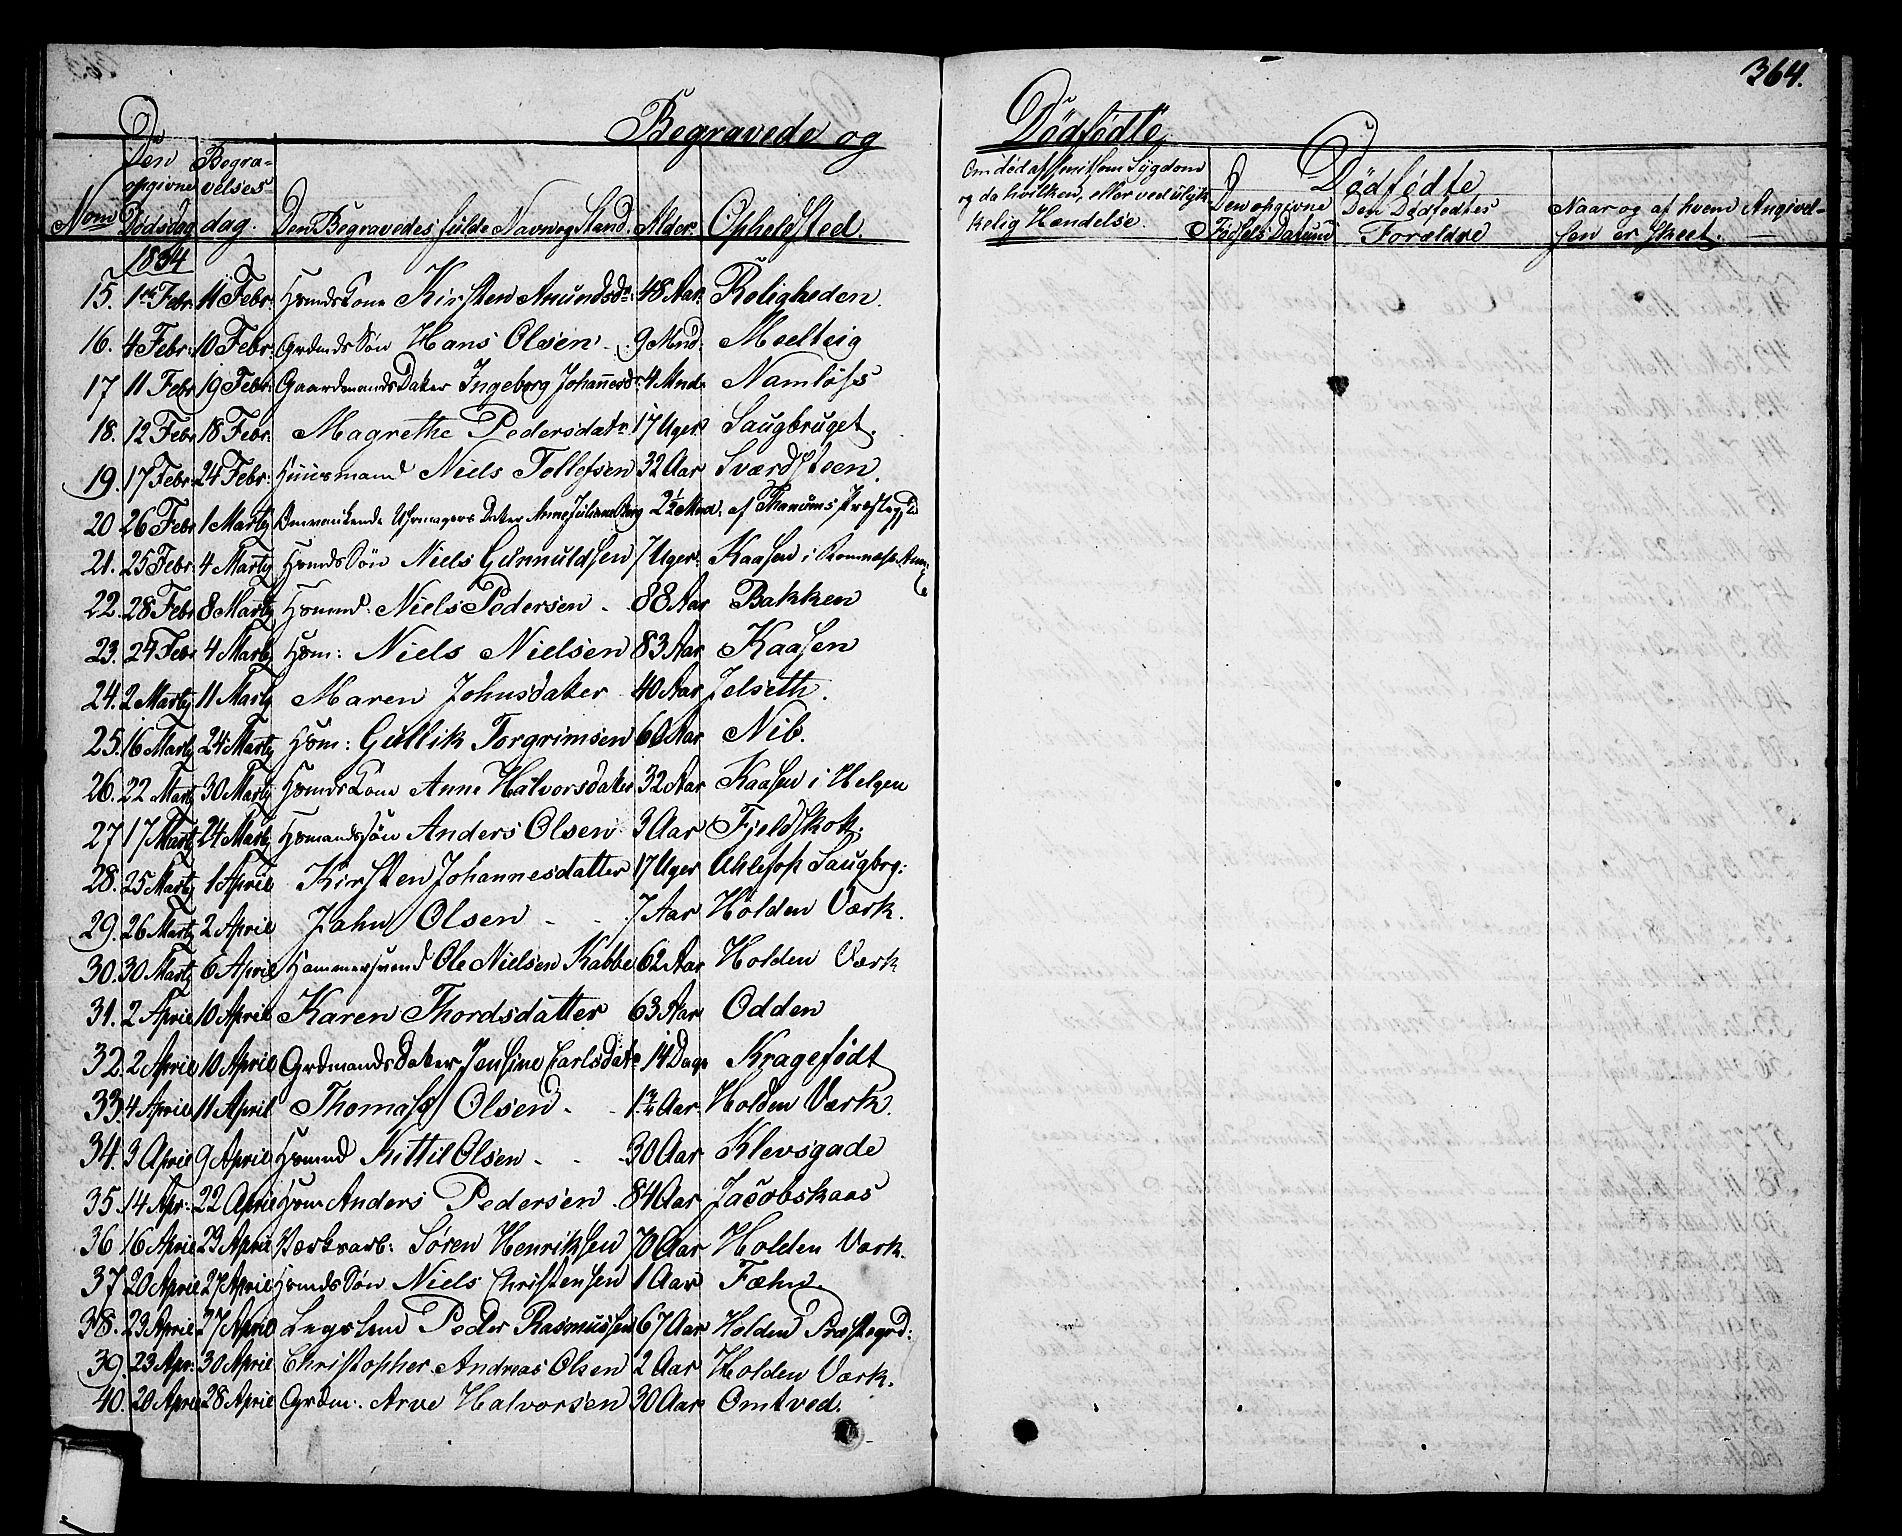 364.
Begravede og Dødfødte
Nom Den opgivne Dødsdag Begra-velses-dag. Den Begravedes fulde Navn og Stand. Alder. Opholdsted. Om død af smitsom Sygdom og da hvilken, eller ved ulyk-kelig Hændelse. Dødfødte Den opgivne Fødsels Datum Den Dødfødtes Forældre Naar og af hvem Angivel-sen er skeet.
1834
15. 1ste Febr. 11 Febr: Hmds Kone Kirsten Amundsdr: 48 Aar. Roligheden.
16. 4 Febr: 10 Febr: Grdmds Søn Hans Olsen 9 Mnd. Moelteig
17 11 Febr 19 Febr: Gaardmands Dater Ingeborg Johannesdr: 4 Mnd. Namløss
18. 12 Febr 18 Febr: Magrethe Pedersdatr 17 Uger Saugbruget.
19. 17 Febr: 24 Febr: Huusmand Niels Tollefsen 32 Aar Sværdsteen.
20 26 Febr 1 Marty Omvankende Dater Anne Juliane Berg 2½ Mnd. af Thanums Præstegjd
21. 25 Febr: 4 Marty Hmds Søn Niels Germuldsen 7 Uger: Kaasen i Romnæs Annx
22. 28 Febr 8 Marty Hmmd: Niels Pedersen - 88 Aar Bakken
23. 24 Febr 4 Marty Hm: Niels Nielsen 83 Aar Kaasen
24. 2 Marty 11 Marty Maren Johnsdater 40 Aar Jelseth.
25. 16 Marty 24 Marty Hm: Gullik Torgrimsen 60 Aar Nib.
26. 22 Marty 30 Marty Hmds Kone Anne Halvorsdater 32 Aar Kaasen i Helgen
27 17 Marty 24 Marty Hmandssøn Anders Olsen 3 Aar Fjeldskok.
28. 25 Marty 1 April Kirsten Johannesdatter 17 Uger Uhlefos Saugbrg:
29. 26 Marty 2 April Jahn Olsen - - 7 Aar Holden Værk.
30. 30 Marty 6 April Hammersmed Ole Nielsen Kabbe 62 Aar Holden Værk
31. 2 April 10 April Karen Thordsdatter 63 Aar Odden
32. 2 April 10 April Grdmands Dater Jensine Carlsdatr 14 Dage Kragefødt
33. 4 April 11 April Thomas Olsen - - Aar. Holden Værk.
34. 3 April 9 April Hmmd Kittil Olsen - - 30 Aar Klevsgade
35. 14 Apr: 22 April Hm Anders Pedersen 84 Aar Jacobskaas
36 16 April 23 April Værksarb: Søren Henriksen 70 Aar Holden Værk.
37 20 April 27 April Hmds Søn Niels Christensen 1 Aar Fæhn.
38. 23 April 27 April Lægslem Peder Rasmussen 67 Aar Holden Præstegrd:
39. 23 Apr: 30 April Christopher Andreas Olsen 2 Aar Holden Værk.
40. 20 April 28 April Grdm. Arve Halvorsen 30 Aar Omtved.